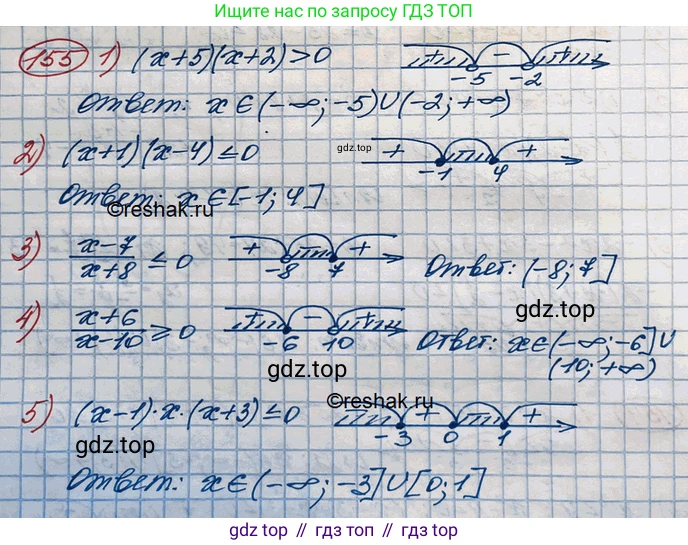 Ищите нас по запросу ГДЗ ТОП
155 1) (x+5)(x+2)>0 + -5 - -2 +
Ответ: x∈(-∞;-5)∪(-2;+∞)
2) (x+1)(x-4)≤0 + -1 4 +
gdz.top
Ответ: x∈[-1;4]
©reshak.ru
3) x-7/x+8 ≤ 0 + -8 - 7 + Ответ: (-8;7]
gdz.top
4) x+6/x-10 ≥ 0 + -6 - 10 + Ответ: x∈(-∞;-6]∪
(10;+∞)
gdz.top gdz.top
©reshak.ru
5) (x-1)·x·(x+3)≤0 - -3 + 0 - 1 +
gdz.top
Ответ: x∈(-∞;-3]∪[0;1]
gdz top // гдз топ // gdz.top